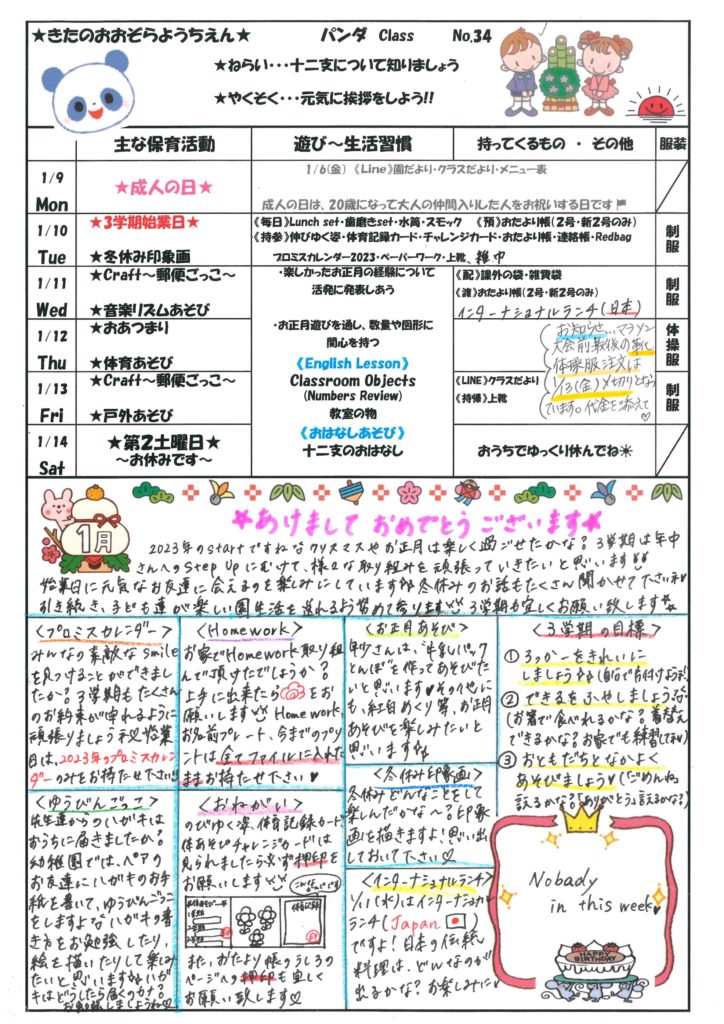 ★きたのおおぞらようちえん★
パンダ Class No.34
★ねらい・・・十二支について知りましょう
★やくそく・・・元気に挨拶をしよう!!
主な保育活動
遊び～生活習慣
持ってくるもの ・ その他
服装
1/9
Mon
★成人の日★
1/6(金) 《Line》園だより・クラスだより・メニュー表
成人の日は、20歳になって大人の仲間入りした人をお祝いする日です
1/10
Tue
★3学期始業日★
★冬休み印象画
《毎日》Lunch set・歯磨きset・水筒・スモック 《預》おたより帳(2号・新2号のみ)
《持参》伸びゆく姿・体育記録カード・チャレンジカード・おたより帳・連絡帳・Redbag
プロミスカレンダー2023・ペーパーワーク・上靴、雑巾
制服
1/11
Wed
★Craft～郵便ごっこ～
★音楽リズムあそび
・楽しかったお正月の経験について
活発に発表しあう
《配》課外の袋・雑費袋
《渡》おたより帳(2号・新2号のみ)
インターナショナルランチ(日本)
制服
1/12
Thu
★おあつまり
★体育あそび
・お正月遊びを通し、数量や図形に
関心を持つ
《English Lesson》
お知らせ...マラソン
大会前最後の
体操服注文は
1/13(金)〆切りとなっ
ています。代金を添えて
体操服
1/13
Fri
★Craft～郵便ごっこ～
★戸外あそび
Classroom Objects
(Numbers Review)
教室の物
《LINE》クラスだより
《持帰》上靴
制服
1/14
Sat
★第2土曜日★
～お休みです～
《おはなしあそび》
十二支のおはなし
おうちでゆっくり休んでね☀
1月
*あけまして おめでとう ございます*
2023年のstartですね クリスマスやお正月は楽しく過ごせたかな? 3学期は年中
さんへのStep Upにむけて、様々な取り組みを頑張っていきたいと思います!!
始業日に元気なお友達に会えるのを楽しみにしています 冬休みのお話もたくさん聞かせて下さい
引き続き、子ども達が楽しい園生活を送れるよう努めて参ります 3学期も宜しくお願い致します
<プロミスカレンダー>
みんなの素敵なsmile
を見つけることができまし
たか? 3学期もたくさん
のお約束が守れるように
頑張りましょう 始業
日は、2023年のプロミスカレン
ダーのみをお持たせ下さい
<Homework>
お家でHomework取り組
んで頂けたでしょうか?
上手に出来たら をお
願いします Homework、
お名前プレート、今までのプリ
ントは全てファイルに入れた
ままお持たせ下さい♥
<お正月あそび>
年少さんは、“牛乳パック
とんぼ”を作ってあそびた
いと思います♥その他に
も、絵目めくり等、お正月
あそびを楽しみたいと
思います
<3学期の目標>
① ろっかーをきれいに
しましょう (自分で片付けよう)
② できるをふやしましょう
(お箸で食べれるかな? 着替え
できるかな? お家でも練習してね)
③ おともだちとなかよく
あそびましょう♥(「ごめんね」
言えるかな?「ありがとう」言えるかな?)
<ゆうびんごっこ>
先生達からのハガキはお
うちに届きましたか?
幼稚園では、ペアの
お友達にハガキのお手
紙を書いて、ゆうびんごっこ
をしますよ ハガキの書
き方をお勉強したり、
絵を描いたりして楽しみ
たいと思います ハガ
キはどうしたら届くのかな?
お勉強しましょうね
<おねがい>
のびゆく姿、体育記録カード、
体あそびチャレンジカードは
見られましたら必ず押印を
お願いします
こんなかんじです
また、おたより帳のうしろの
ページへの押印も宜しく
お願い致します♡
<冬休み印象画>
冬休みどんなことをして
楽しんだかな～? 印象
画を描きますよ! 思い出
しておいて下さい♡
<インターナショナルランチ>
1/11(水)はインターナショナル
ランチ(Japan )
ですよ! 日本の伝統
料理は、どんなのが
出るかな? お楽しみに♥
Nobady
in this week♥
HAPPY
BIRTHDAY